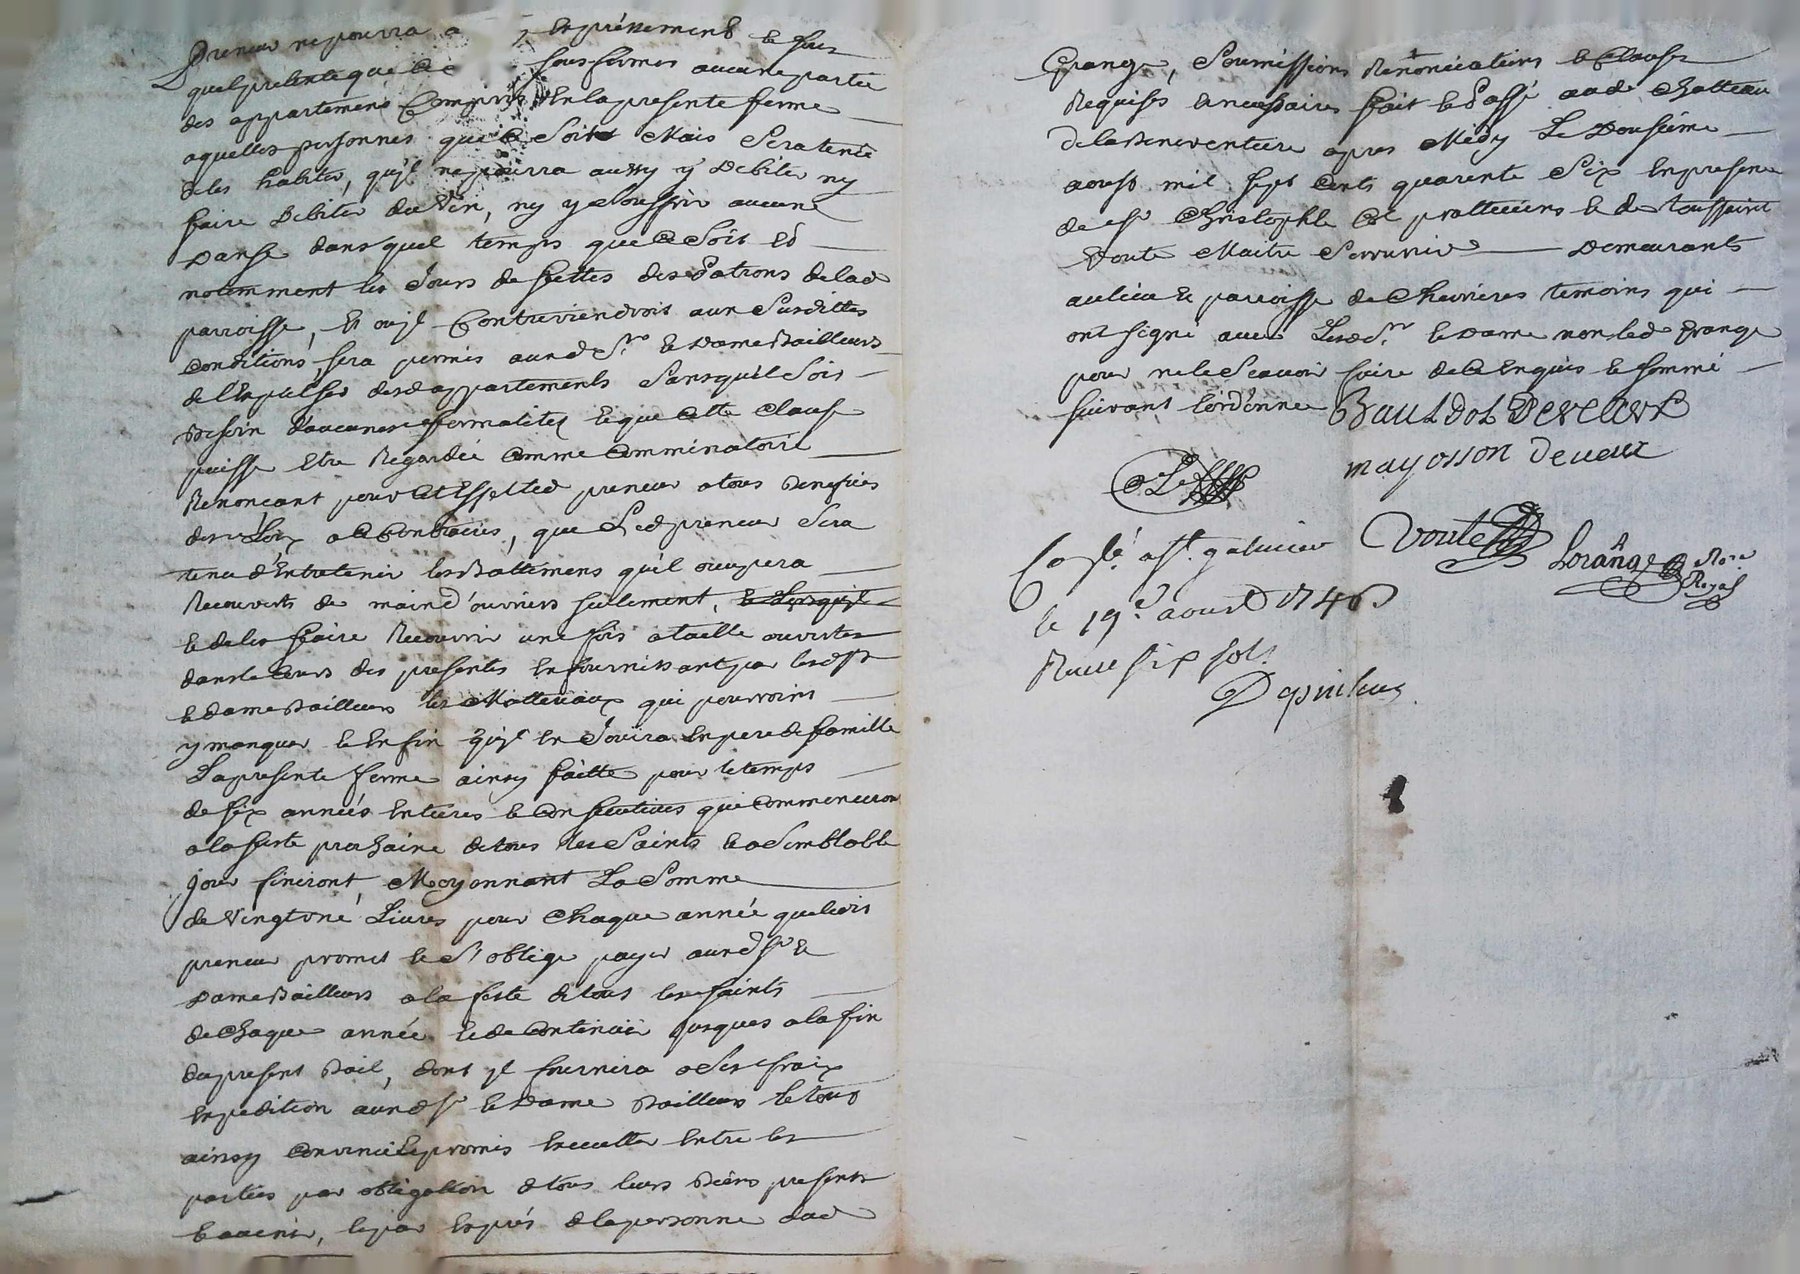 Preneur ne pourra expressement et sous
quelpretexte que Ce sousfermer aucune partie
des appartements Compris En la presente ferme
a quelles personnes que Ce Soit Mais Sera tenu
de les habiter, qu'jl ne pourra aussy y Debiter ny
faire Debiter du Vin, ny y Souffrir aucune
Danse dans quel temps que Ce Soit Et
notemment les Jours de fettes des Patrons de lad
parroisse, Et ou jl Contreviendroit aux Susdittes
Conditions, sera permis auxd Srs et Dame Bailleurs
de l'Expulser desd appartements Sans qu'il Soit
Besoin d'aucunes formalités et que Cette Clause
puisse Etre Regardée Comme Comminatoire
Renoncant pour Cet Effet led preneur a tous Benefices
des Loix a Ce Contraires, que Led preneur Sera
tenu d'Entretenir les Battemens qu'il occupera
Recouverts de main d'ouvriers seulement, et Lorsqu'jl
et de les faire Recouvrir une fois a taille ouverte
dans le Cours des presentes En fournissant par lesd Sr
et dame Bailleurs les Matteriaux qui pourroint
y manquer et Enfin qu'jl En Jouira En pere de famille
La presente ferme ainsy faitte pour le temps
de six années Entieres et Consecutives qui Commenceron
a la feste prochaine de tous Les Saints et a Semblable
jour finiront, Moyennant La Somme
de Vingt une Livres pour Chaque année que ledit
preneur promet et S'oblige payer auxd Sr et
Dame Bailleurs a la feste de tous les saints
de Chaque année et de Continuer jusques a la fin
du present Bail, dont jl fournira a Ses fraix
Expedition auxd Sr et Dame Bailleurs le tout
ainsy Convenu et promis Executter Entre les
parties par obligation de tous leurs Biens presents
et avenir, et par Exprés de la personne dud
Grange, Soumissions Renonciations et Clauses
Requises et necessaires fait et Passé aud Chatteau
de la Beneventiere apres Midy Le Douzieme
aoust mil sept Cents quarente Six En presence
de Sr Christophle Col pratticiens et de Toussaint
Voute Maitre Serrurier Demeurants
au lieu et parroisse de Chevrieres temoins qui
ont signé avec Lesd Sr et Dame non led Grange
pour ne le Scavoir faire de Ce Enquis et sommé
suivant l'ordonnce
mayosson Devaux
Col
Voute
Lorange Nore
Royal
Conlé a St galmier
le 19e aoust 1746
Receu six sols